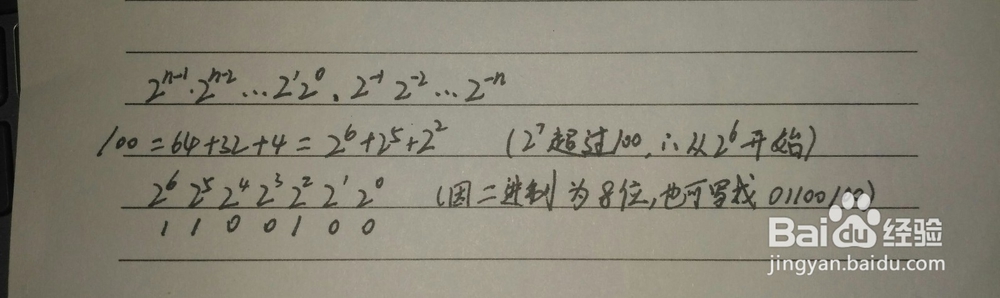 2^{n-1}·2^{n-2}…2^1 2^0、2^{-1} 2^{-2}…2^{-n}
100=64+32+4=2^6+2^5+2^2 (2^7超过100,∴从2^6开始)
2^6 2^5 2^4 2^3 2^2 2^1 2^0 (因二进制为8位,也可写成 01100100)
1 1 0 0 1 0 0
Bai du 经验
jingyan.baidu.com